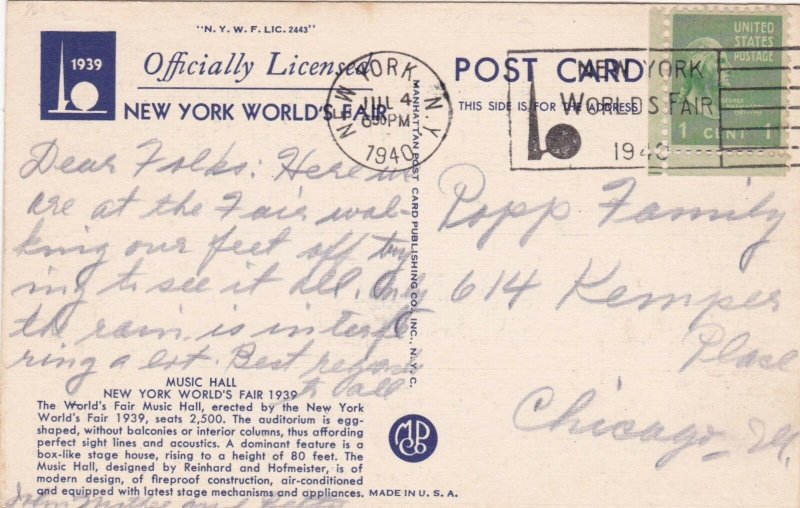 "N.Y.W.F. LIC. 2443"
1939
Officially Licensed
NEW YORK WORLD'S FAIR
POST CARD
THIS SIDE IS FOR THE ADDRESS
UNITED
STATES
POSTAGE
1 CENT 1
NEW YORK, N.Y.
JUL 4
6 30 PM
1940
NEW YORK
WORLD'S FAIR
1940
MANHATTAN POST CARD PUBLISHING CO., INC., N. Y. C.
Dear Folks: Here we
are at the Fair wal-
king our feet off try
ing to see it all. Only
the rain is interfe
ring a lot. Best regards
to all
Popp Family
614 Kemper
Place
Chicago, Ill.
MUSIC HALL
NEW YORK WORLD'S FAIR 1939
The World's Fair Music Hall, erected by the New York
World's Fair 1939, seats 2,500. The auditorium is egg-
shaped, without balconies or interior columns, thus affording
perfect sight lines and acoustics. A dominant feature is a
box-like stage house, rising to a height of 80 feet. The
Music Hall, designed by Reinhard and Hofmeister, is of
modern design, of fireproof construction, air-conditioned
and equipped with latest stage mechanisms and appliances.
MADE IN U. S. A.
John